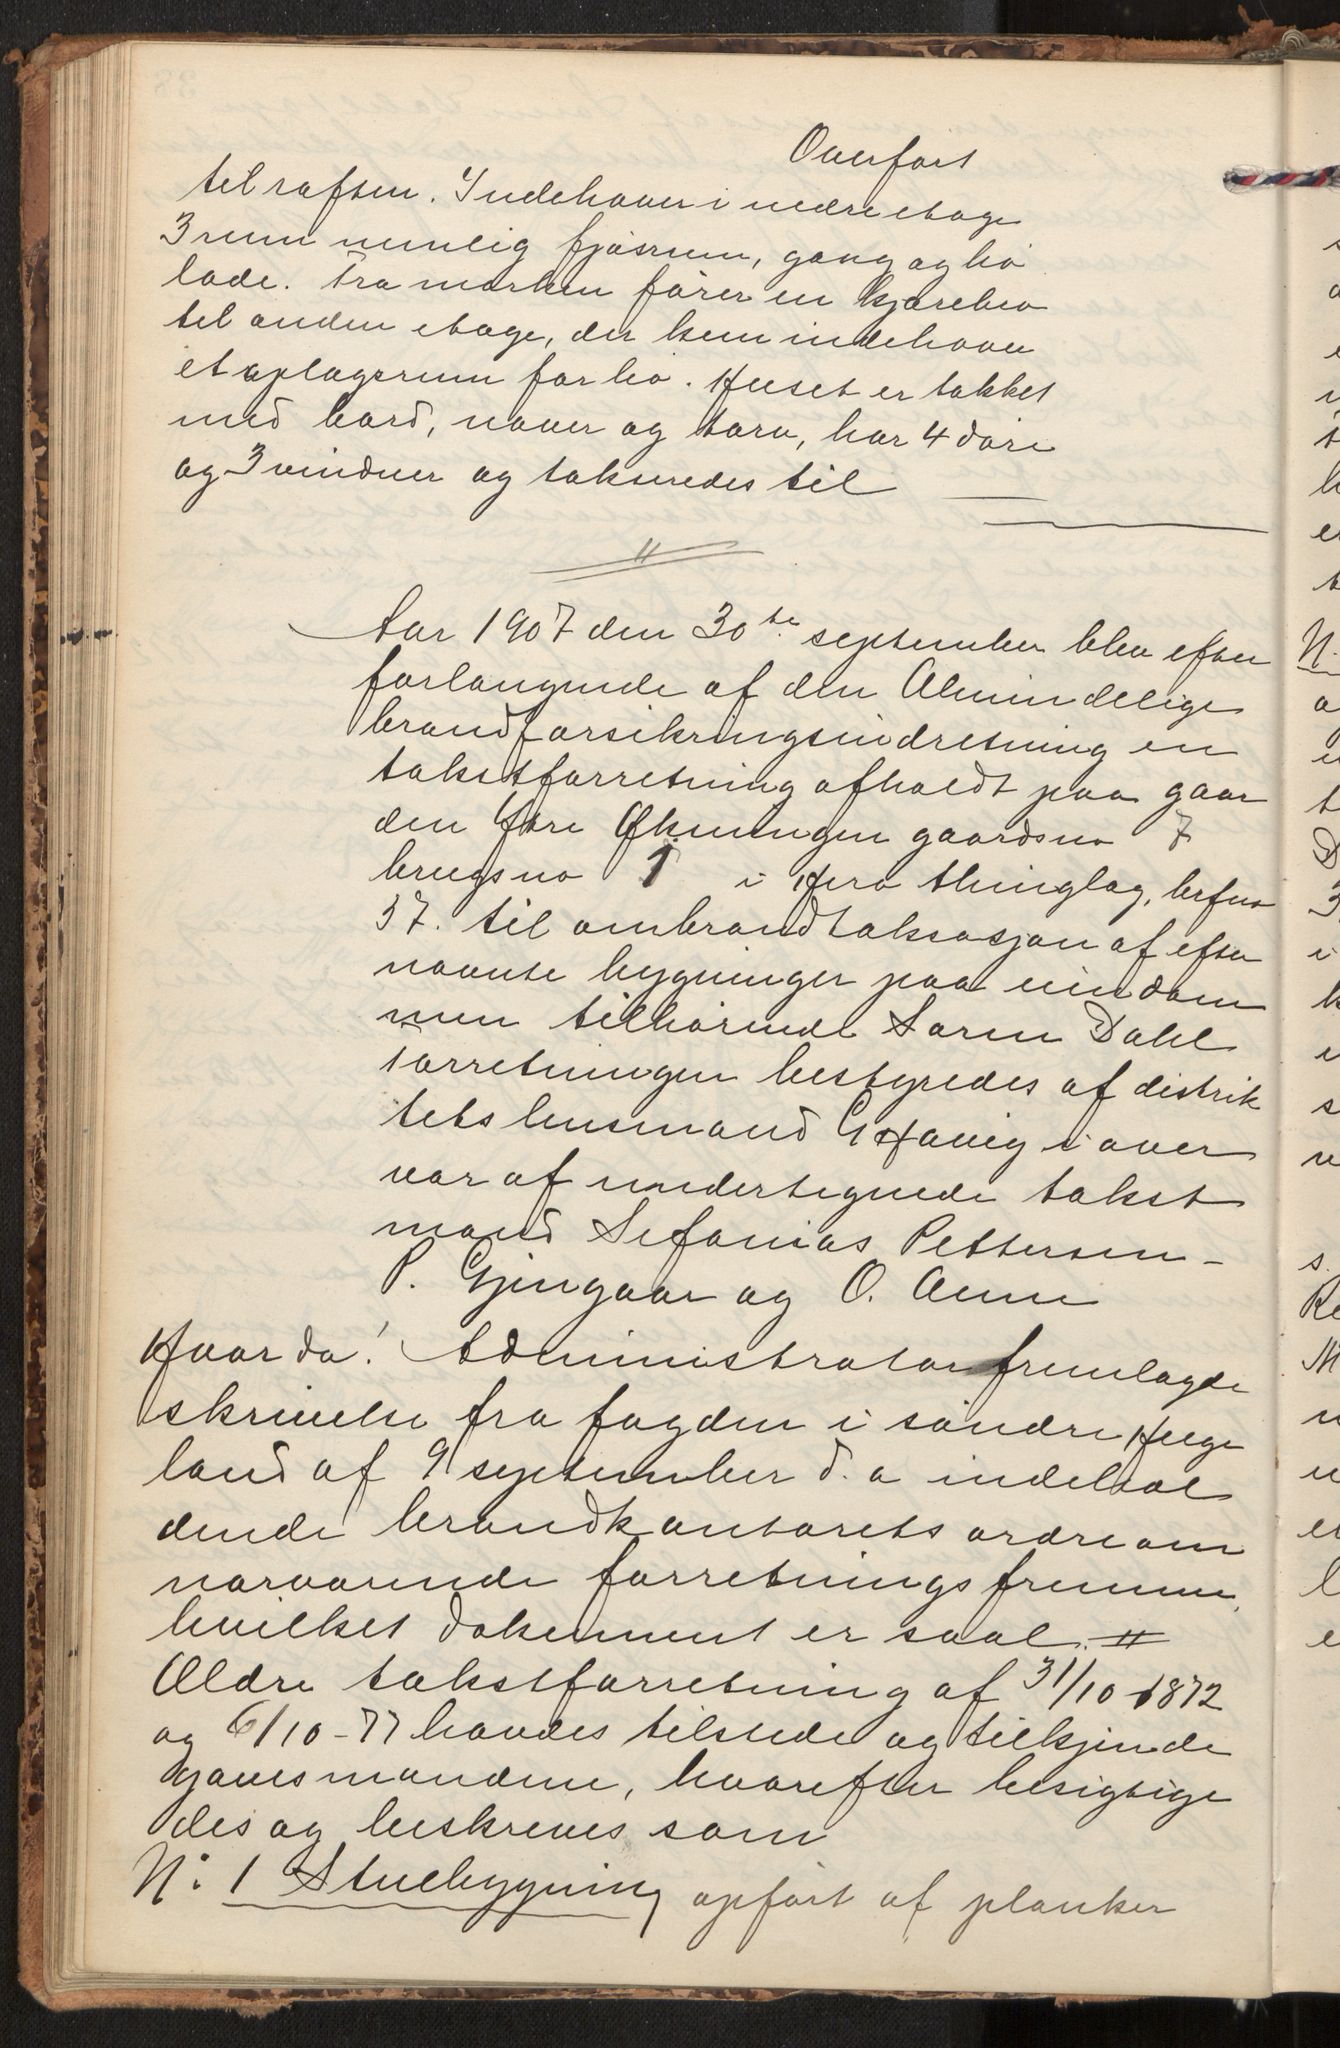 Overført
til raften. Indehaver i nedre etage
3 rum nemlig fjøsrum, gang og hø
lade. Fra marken fører en kjørebro
til anden etage, der kun indehaver
et oplagsrum for hø. Huset er takket
med bord, næver og torv, har 4 døre
og 3 vinduer og takseredes til
Aar 1907 den 30te september blev efter
forlangende af den Almindelige
brandforsikringsindretning en
takstforretning afholdt paa gaar
den Ydre Øksningen gaardsno 7
brugsno 1 i Herø thinglag, brfno
37. til ombrandtaksasjon af efter
nævnte bygninger paa eiendom
men tilhørende Søren Dahl
Forretningen bestyredes af distrik
tets lensmand G Havig i over
vær af undertegnede takst
mænd Sefanias Pettersen -
P. Gjengaar og O. Aune
Hvorda! Administrator fremlagde
skrivelse fra fogden i søndre Helge
land af 9 september d. a indehol
dende brandkontorets ordre om
nærværende forretnings fremme,
hvilket dokument er saal.
Ældre takstforretning af 31/10 1872
og 6/10-77 havdes tilstede og tilkjende
gaves mændene, hvorefter besigtige
des og beskreves som
N: 1 Stuebygning opført af planker
N.